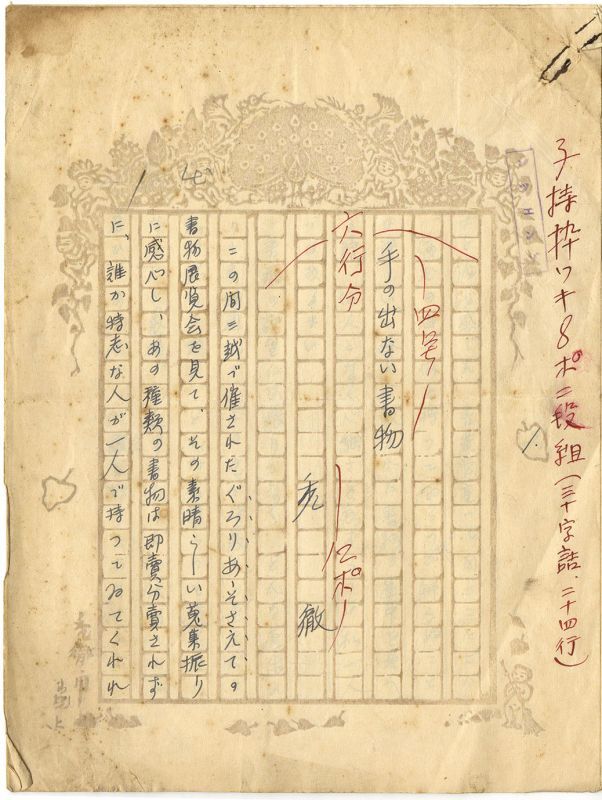 子持枠ワキ8ポ二段組(三十字詰、二十四行)
四号
手の出ない書物
六行分
12ポ
禿 徹
この間三越で催されたぐろりあ・そさえての
書物展覧会を見て、その素晴らしい蒐集振り
に感心し、あの種類の書物は即賣分賣されず
に、誰か特志な人が一人で持つてゐてくれれ